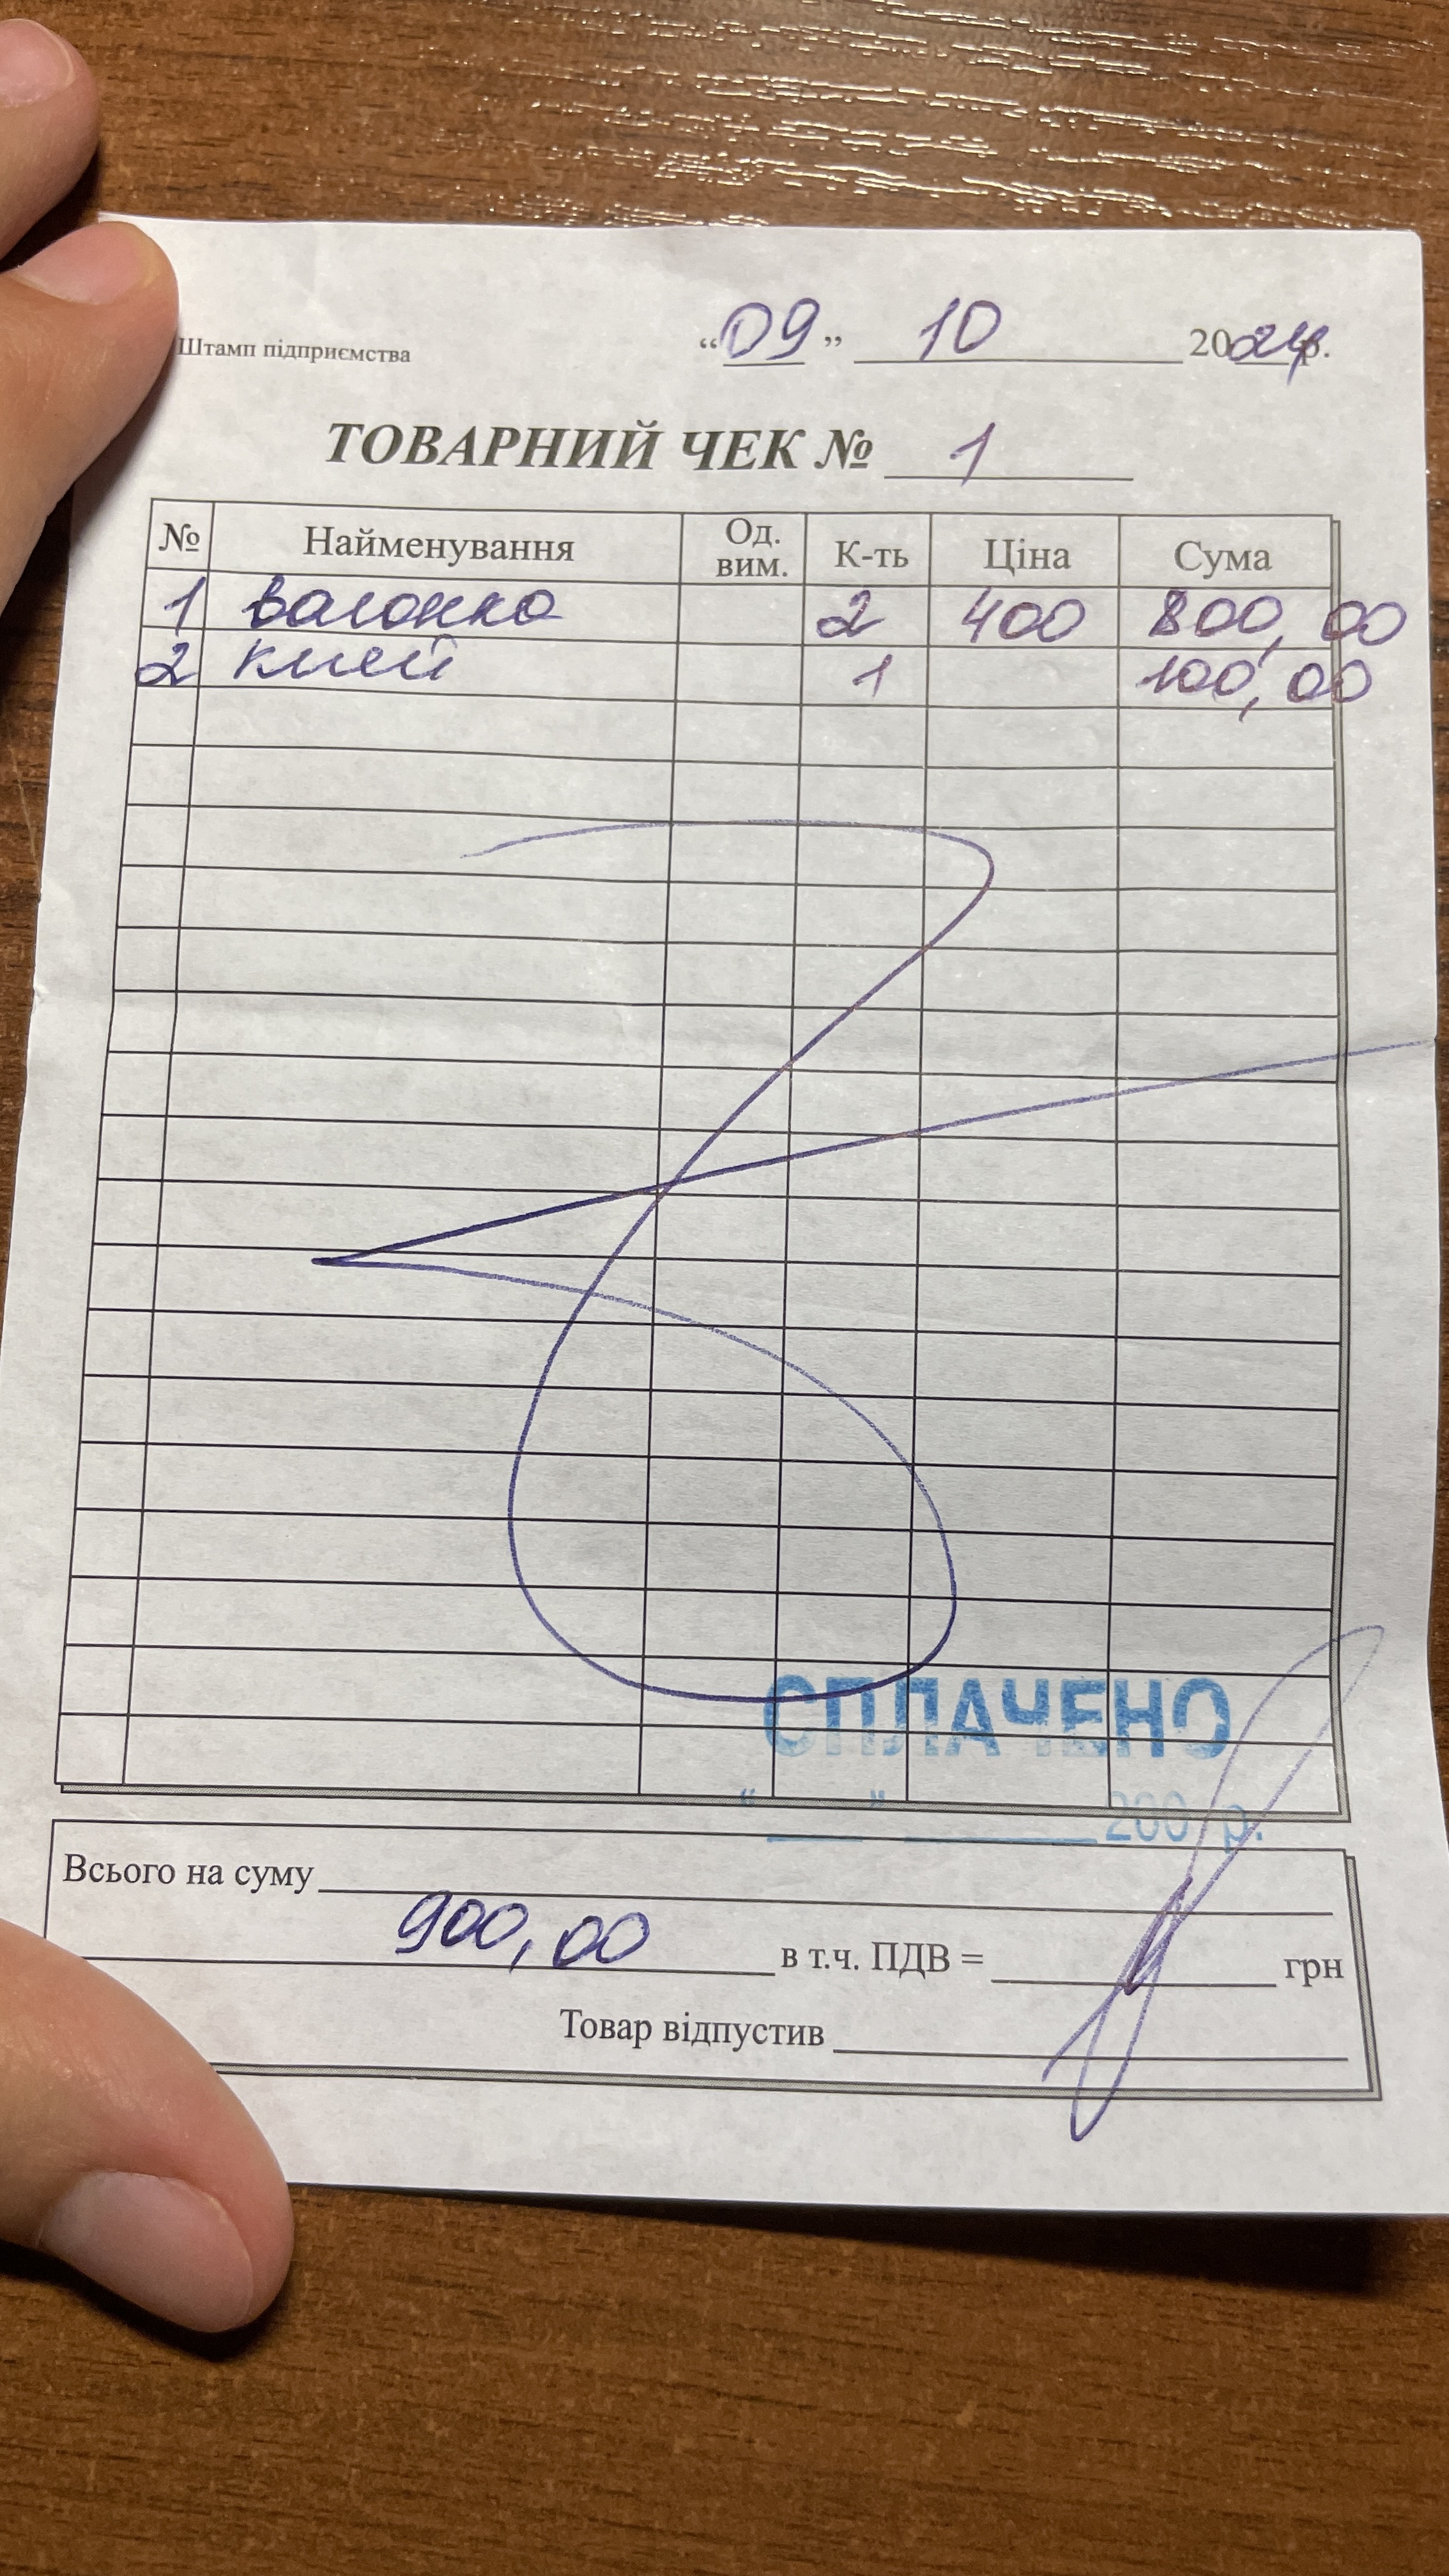 Штамп підприємства “09” 10 2024р.
ТОВАРНИЙ ЧЕК № 1
№ Найменування Од. вим. К-ть Ціна Сума
1 вагонка 2 400 800,00
2 клей 1 100,00
СПЛАЧЕНО
“ ” 200 р.
Всього на суму
900,00 в т.ч. ПДВ = грн
Товар відпустив